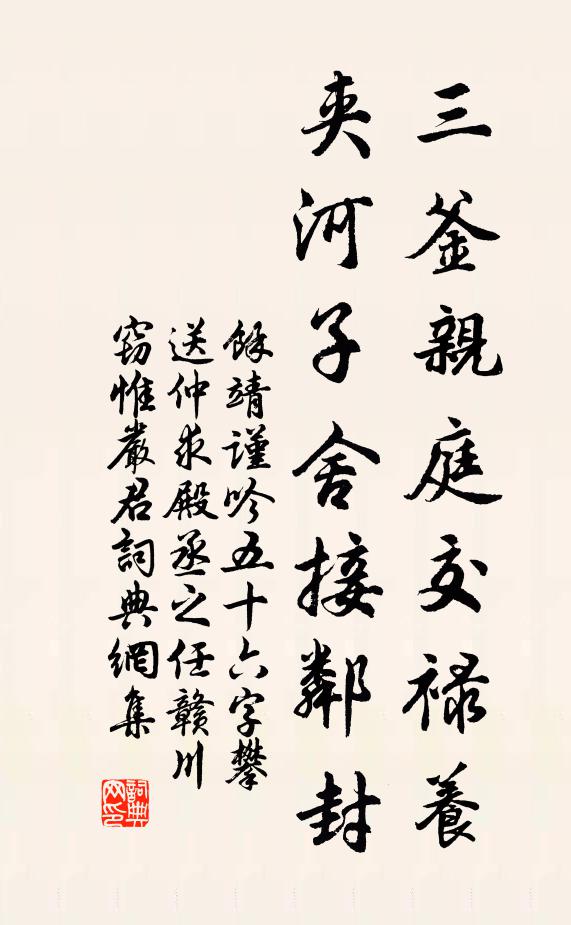 三釜親庭交禄養
夾河子舍接鄰封
餘靖謹吟五十六字攀
送仲求殿丞之任贛川
窃惟嚴君詞典網集
詞典
网印